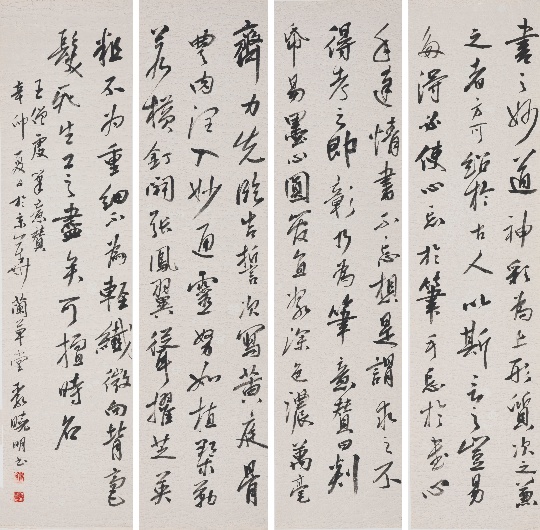 書之妙道神彩為上形質次之兼
之者方可紹於古人以斯言之豈易
多得必使心忘於筆手忘於書心
手達情書不忘想是謂求之不
得考之即彰乃為筆意贊曰剡
紙易墨心圓管直漿深色濃萬毫
齊力先臨告誓次寫黃庭骨
豐肉潤入妙通靈努如植槊勒
若橫釘開張鳳翼聳擢芝英
粗不為重細不為輕纖微向背毫
髮死生工之盡矣可擅時名
王僧虔筆意贊
辛卯夏日於京華蘭草堂曉明書